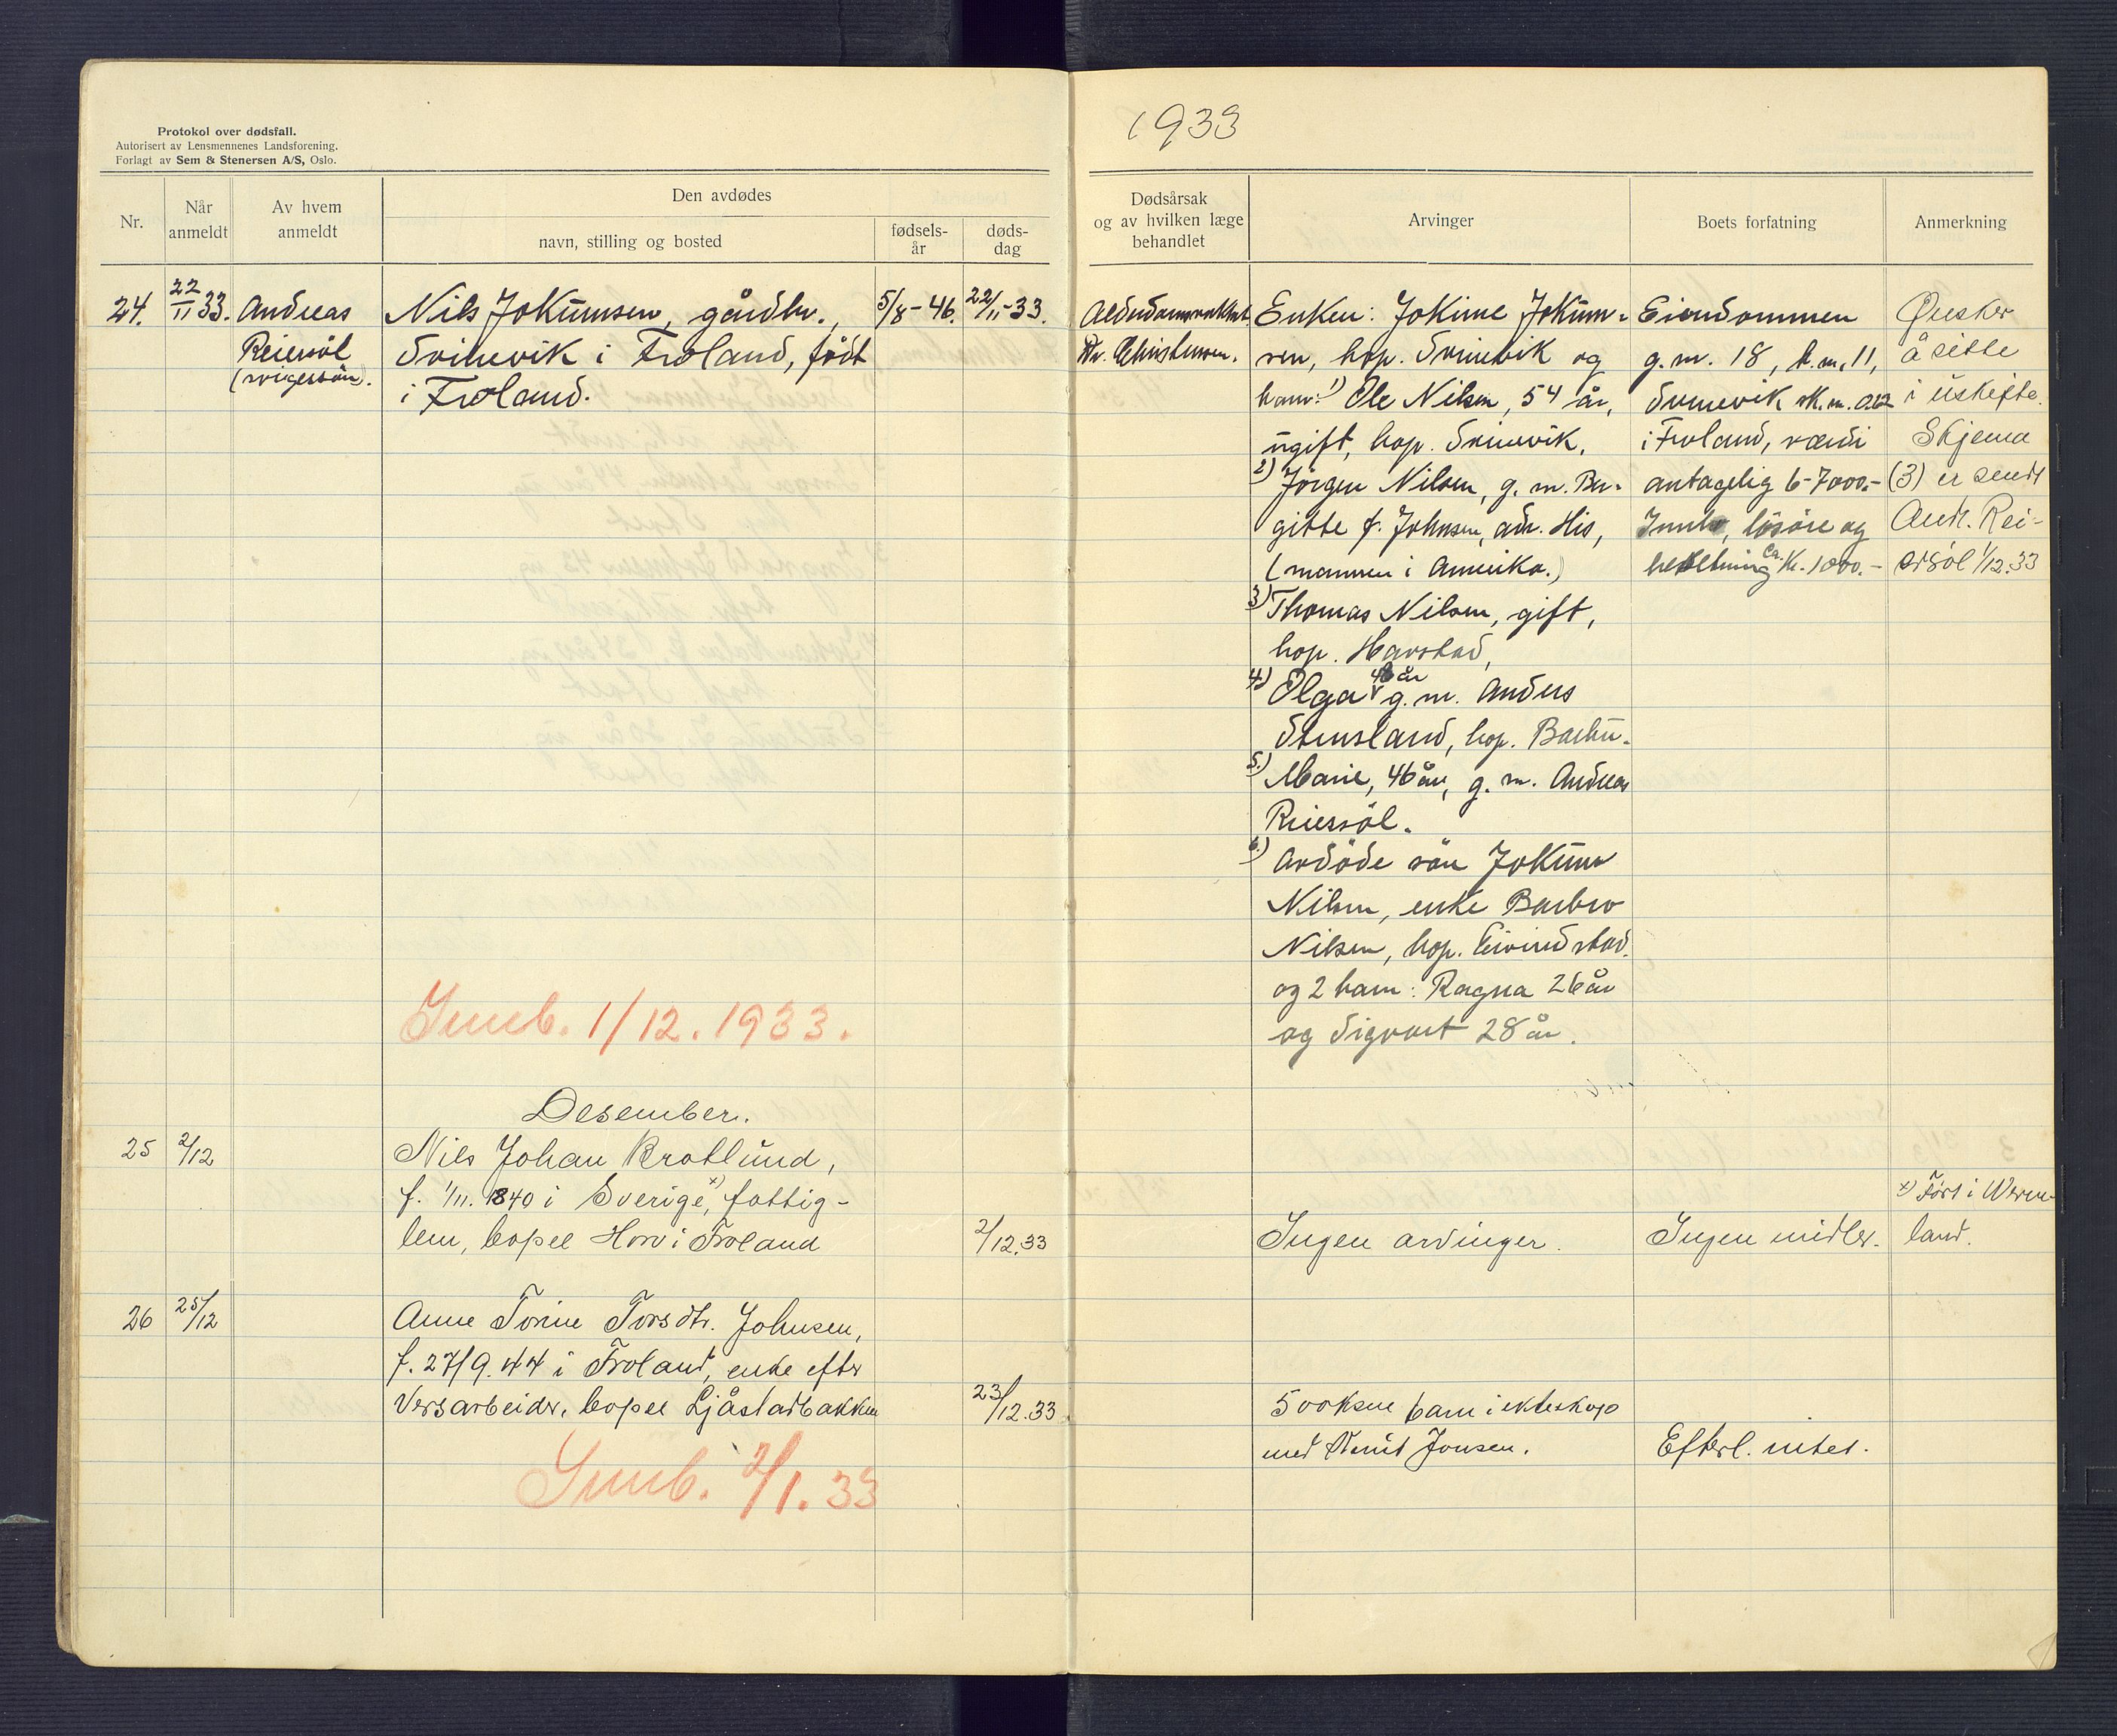 Protokol over dødsfall.
Autorisert av Lensmennenes Landsforening.
Forlagt av Sem & Stenersen A/S, Oslo.
Nr.
Når
anmeldt
Av hvem
anmeldt
Den avdødes
navn, stilling og bosted
fødsels-
år
døds-
dag
24.
22/11 33.
Andreas
Reiersöl
(svigersön).
Nils Jokumsen, gårdbr.,
Svinevik i Froland, födt
i Froland.
5/8-46.
22/11-33.
Innb. 1/12. 1933.
Desember.
25
2/12
Nils Johan Brotlund,
f. 1/11. 1840 i Sverige x), fattig-
lem, bopel Hovi Froland
2/12.33
26
25/12
Anne Tonine Torsdtr. Johnsen,
f. 27/9.44 i Froland, enke efter
Versarbeider, bopel Ljåstadbakken
23/12.33
Innb. 2/1.33
1933
Dødsårsak
og av hvilken læge
behandlet
Arvinger
Boets forfatning
Anmerkning
Dr. Christensen.
Enken: Jokine Jokum-
sen, bop. Svinevik og
barn: 1) Ole Nilsen, 54 år,
ugift, bop. Svinevik.
2) Jörgen Nilsen, g. m. Ber-
gitte f. Johnsen, adr. His,
(mannen i Amerika.)
3) Thomas Nilsen, gift,
bop. Harstad,
4) Olga g. m. Anders
Stensland, bop. Barbu.
5.) Marie, 46 år, g. m. Andreas
Reiersöl.
6.) Avdöde sön Jokum
Nilsen, enke Barbro
Nilsen, bop. Eivindstad.
og 2 barn: Ragna 26 år
og Sigvart 28 år.
Eiendommen
g. nr. 18, b. nr. 11,
Svinevik sk. m. 0.62
i Froland, verdi
antagelig 6-7000.-
lösöre og
besetning ca. kr. 1000.-
Önsker
å sitte
i uskifte.
Skjema
(3) er sendt
Andr. Rei-
ersöl 1/12.33
Ingen arvinger.
Ingen midler.
x) Födt i Werm-
land.
5 voksne barn i ekteskap
med Knut Jonsen.
Efterl. intet.